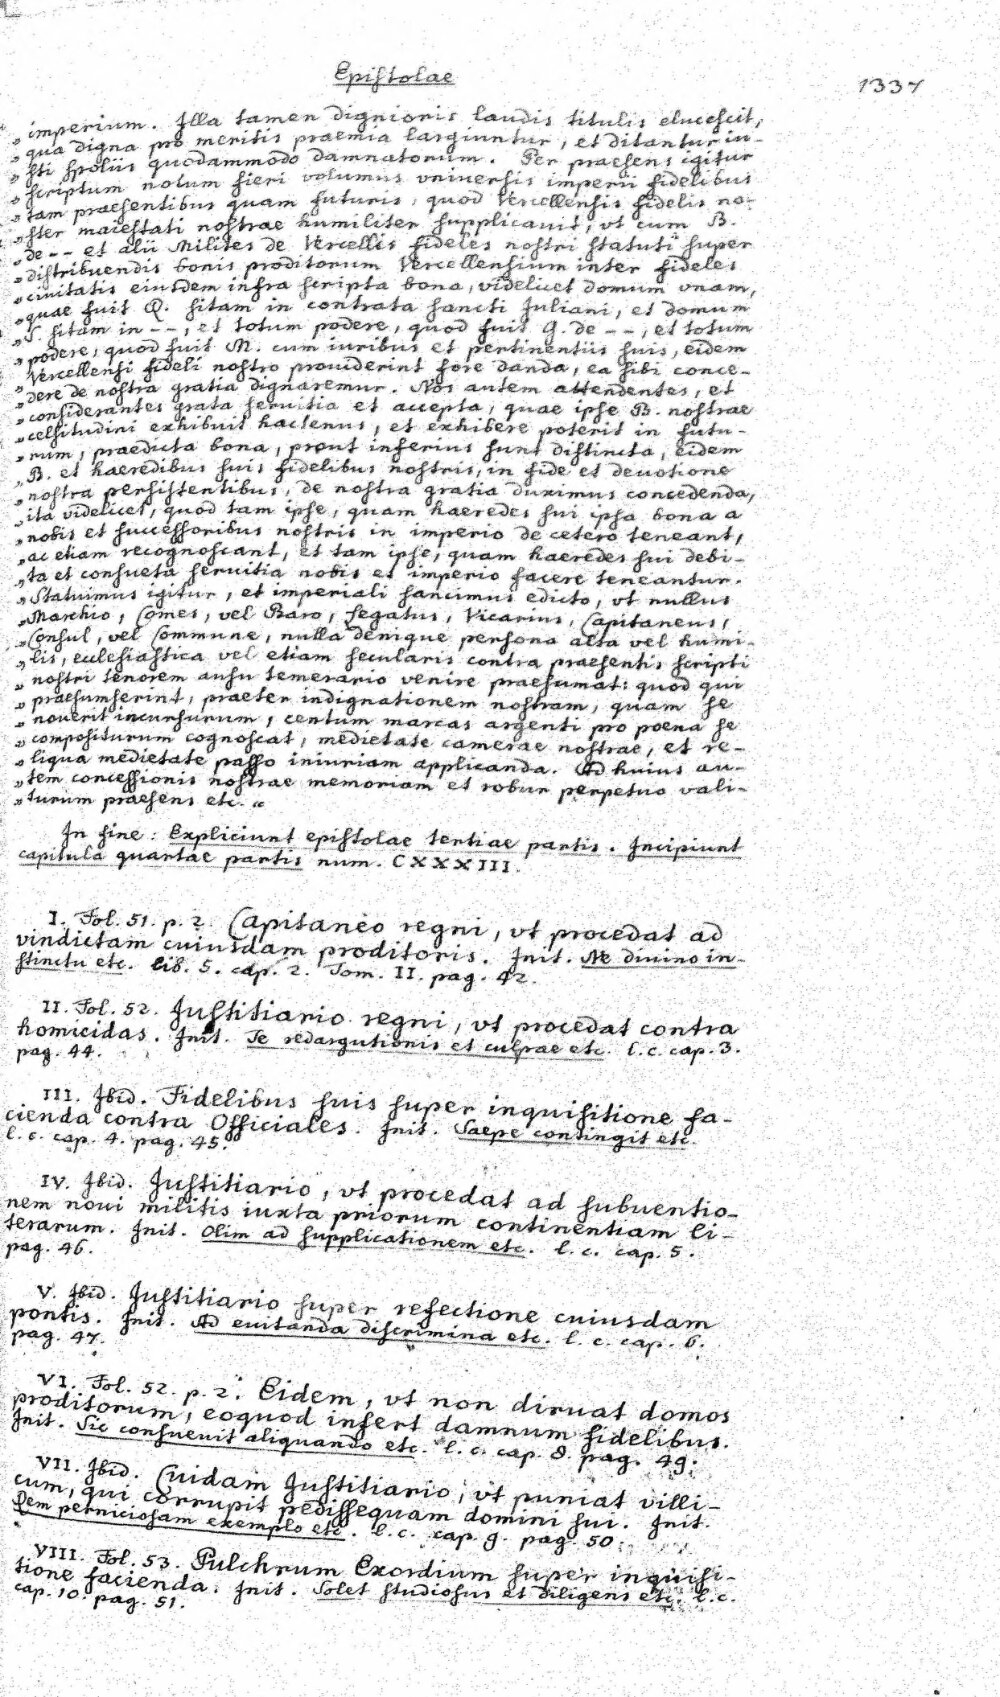 Epistolae
1337
„imperium. Illa tamen dignioris laudis titulis elucescit,
„qua digna pro meritis praemia largiuntur, et ditantur iu-
„sti spoliis quodammodo damnatorum. Per praesens igitur
„scriptum notum fieri volumus vniversis imperii fidelibus
„tam praesentibus quam futuris, quod Vercellensis fidelis no-
„ster maiestati nostrae humiliter supplicauit, vt cum B.
„de -- et alii Milites de Vercellis fideles nostri statuti super
„distribuendis bonis proditorum Vercellensium inter fideles
„ciuitatis eiusdem infra scripta bona, videlicet domum vnam,
„quae fuit Q. sitam in contrata sancti Juliani, et domum
„S. sitam in --, et totum podere, quod fuit G. de --, et totum
„podere, quod fuit M. cum iuribus et pertinentiis suis, eidem
„Vercellensi fideli nostro prouiderint fore danda, ea sibi conce-
„dere de nostra gratia dignaremur. Nos autem attendentes, et
„considerantes grata seruitia et accepta, quae ipse B. nostrae
„celsitudini exhibuit hactenus, et exhibere poterit in futu-
„rum, praedicta bona, prout inferius sunt distincta, eidem
„B. et haeredibus suis fidelibus nostris, in fide et deuotione
„nostra persistentibus, de nostra gratia duximus concedenda,
„ita videlicet, quod tam ipse, quam haeredes sui ipsa bona a
„nobis et successoribus nostris in imperio de cetero teneant,
„ac etiam recognoscant, et tam ipse, quam haeredes sui debi-
„ta et consueta seruitia nobis et imperio facere teneantur.
„Statuimus igitur, et imperiali sancimus edicto, vt nullus
„Marchio, Comes, vel Baro, Legatus, Vicarius, Capitaneus,
„Consul, vel Commune, nulla denique persona alta vel humi-
„lis, ecclesiastica vel etiam secularis contra praesentis scripti
„nostri tenorem ausu temerario venire praesumat: quod qui
„praesumserint, praeter indignationem nostram, quam se
„nouerit incursurum, centum marcas argenti pro poena se
„compositurum cognoscat, medietate camerae nostrae, et re-
„liqua medietate passo iniuriam applicanda. Ad huius au-
„tem concessionis nostrae memoriam et robur perpetuo vali-
„turum praesens etc. „
In fine: Expliciunt epistolae tertiae partis. Incipiunt
capitula quartae partis num. CXXXIII.
I. Fol. 51. p. 2. Capitaneo regni, vt procedat ad
vindictam cuiusdam proditoris. Init. Ne diuino in-
stinctu etc. lib. 5. cap. 2. Tom. II. pag. 42.
II. Fol. 52. Justitiario regni, vt procedat contra
homicidas. Init. Te redargutionis et culpae etc. l. c. cap. 3.
pag. 44.
III. Ibid. Fidelibus suis super inquisitione fa-
cienda contra Officiales. Init. Saepe contingit etc.
l. c. cap. 4. pag. 45.
IV. Ibid. Justitiario, vt procedat ad subuentio-
nem noui militis iuxta priorum continentiam li-
terarum. Init. Olim ad supplicationem etc. l. c. cap. 5.
pag. 46.
V. Ibid. Justitiario super refectione cuiusdam
pontis. Init. Ad euitanda discrimina etc. l. c. cap. 6.
pag. 47.
VI. Fol. 52. p. 2. Eidem, vt non diruat domos
proditorum, eoquod infert damnum fidelibus.
Init. Sic consueuit aliquando etc. l. c. cap. 8. pag. 49.
VII. Ibid. Cuidam Justitiario, vt puniat villi-
cum, qui corrupit pedissequam domini sui. Init.
Rem perniciosam exemplo etc. l. c. cap. 9. pag. 50.
VIII. Fol. 53. Pulchrum Exordium super inquisi-
tione facienda. Init. Solet studiosus et diligens etc. l. c.
cap. 10. pag. 51.